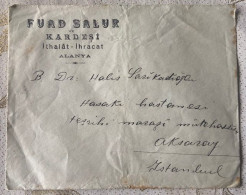 FUAD SALUR
VE
KARDEŞİ
İthalât-İhracat
ALANYA
B Dr. Halis
Haseki hastanesi
teşrihi marazi mütehassısı
Aksaray
İstanbul